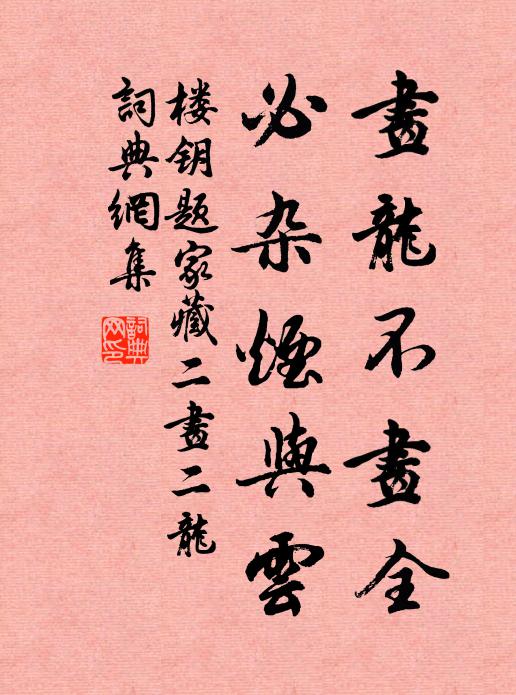 畫龍不畫全
必杂煙與雲
楼钥题家藏二畫二龍
詞典網集
詞典網印